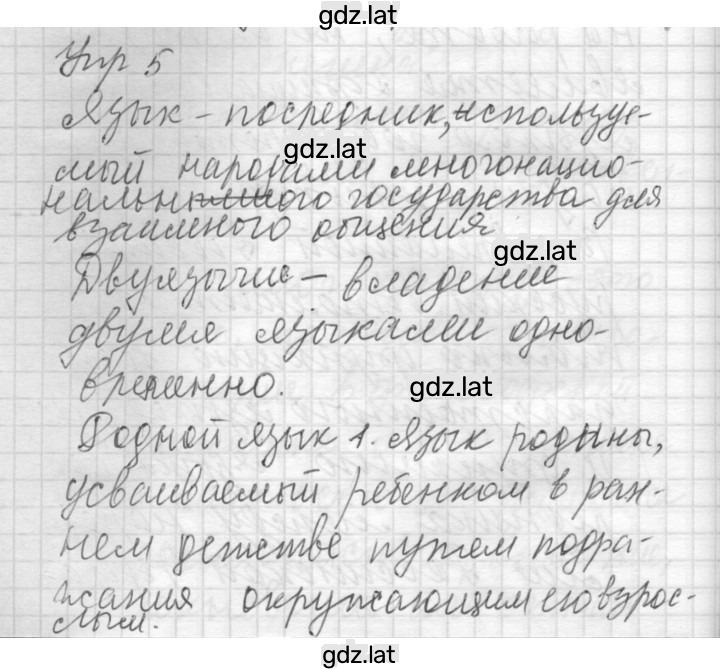 gdz.lat
Упр 5
Язык - посредник, используе-
gdz.lat
мый народами многонацио-
нального государства для
взаимного общения
gdz.lat
Двуязычие - владение
двумя языками одно-
временно.
gdz.lat
Родной язык 1. Язык родины,
усваиваемый ребенком в ран-
нем детстве путем подра-
жания окружающим его взрос-
слым.
gdz.lat